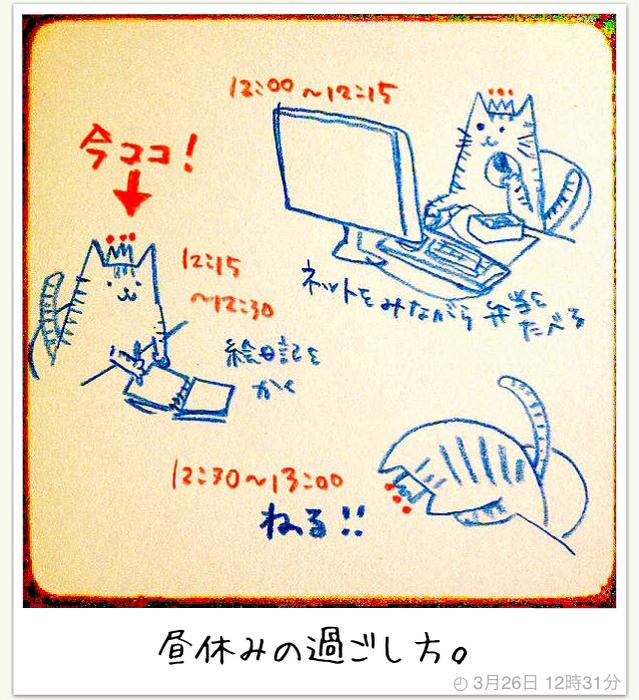 12:00〜12:15
ネットをみながら 弁当を
たべる
今ココ!
12:15
〜12:30
絵日記を
かく
12:30〜13:00
ねる!!
昼休みの過ごし方。
3月26日 12時31分